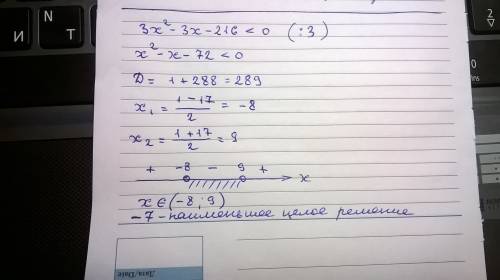 3x² - 3x - 216 < 0 (:3)
x² - x - 72 < 0
D = 1 + 288 = 289
x₁ = (1 - 17)/2 = -8
x₂ = (1 + 17)/2 = 9
+ -8 - 9 + x
x ∈ (-8; 9)
-7 - наименьшее целое решение
Дата/Date
И N Т 2